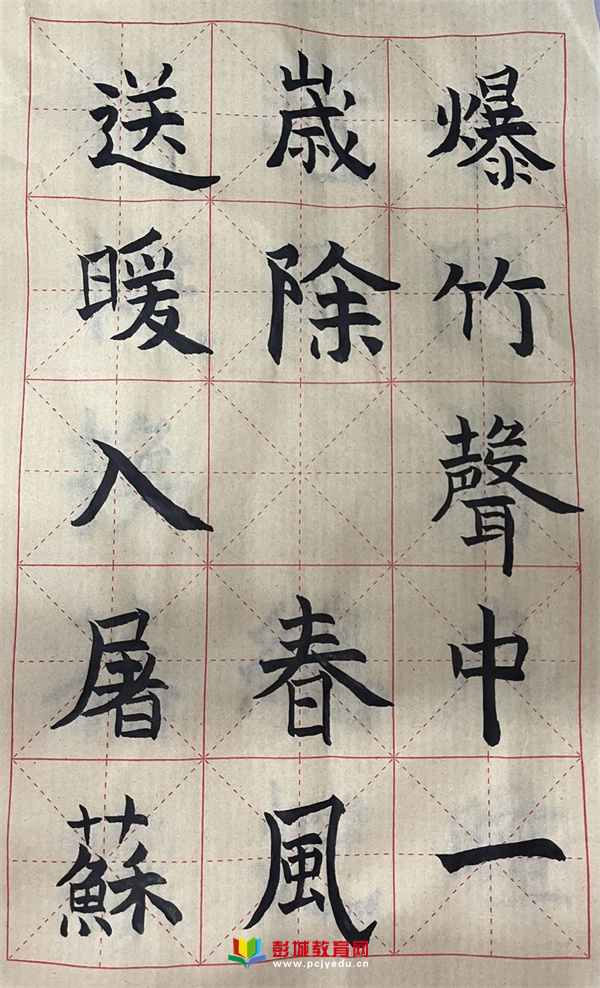 爆竹聲中一
歲除 春風
送暖入屠蘇
彭城教育网
www.pcjyedu.cn